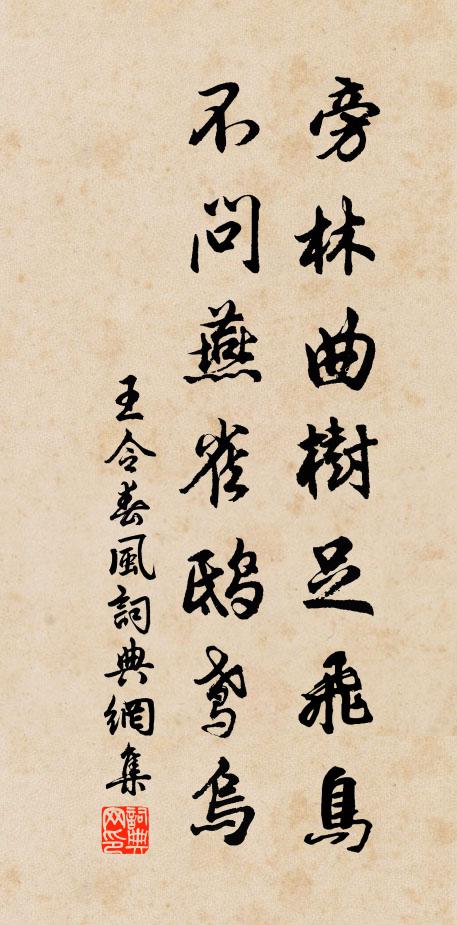 旁林曲樹足飛鳥
不問燕雀鴟鳶烏
王令春風詞典網集
詞典网印